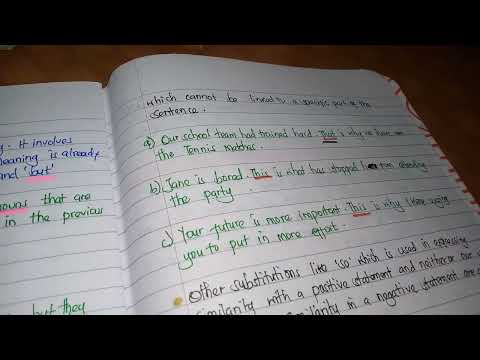 g. It involves
meaning is already
and 'but'
nouns that are
in the previous
but they
which cannot be linked to a specific part of the
sentence.
a) Our school team had trained hard. That is why we have won
the Tennis matches.
b) Jane is bored. This is what has stopped her from attending
the party
c) Your future is more important. This is why I urging
you to put in more effort.
Other substitutions like 'so' which is used in expressing
similarity with a positive statement and neither or nor
similarity in a negative statement are